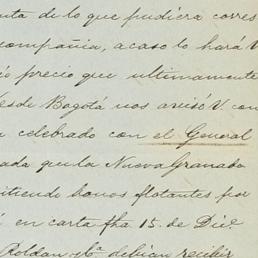 nta de lo que pudiera corres
compañia, acaso lo hará V
io precio que ultimamente
desde Bogotá nos avisó V con
a celebrado con el General
ada que la Nueva Granada
itiendo bonos flotantes por
en carta fha 15. de Dice.
Roldan y Ca. debian recibir